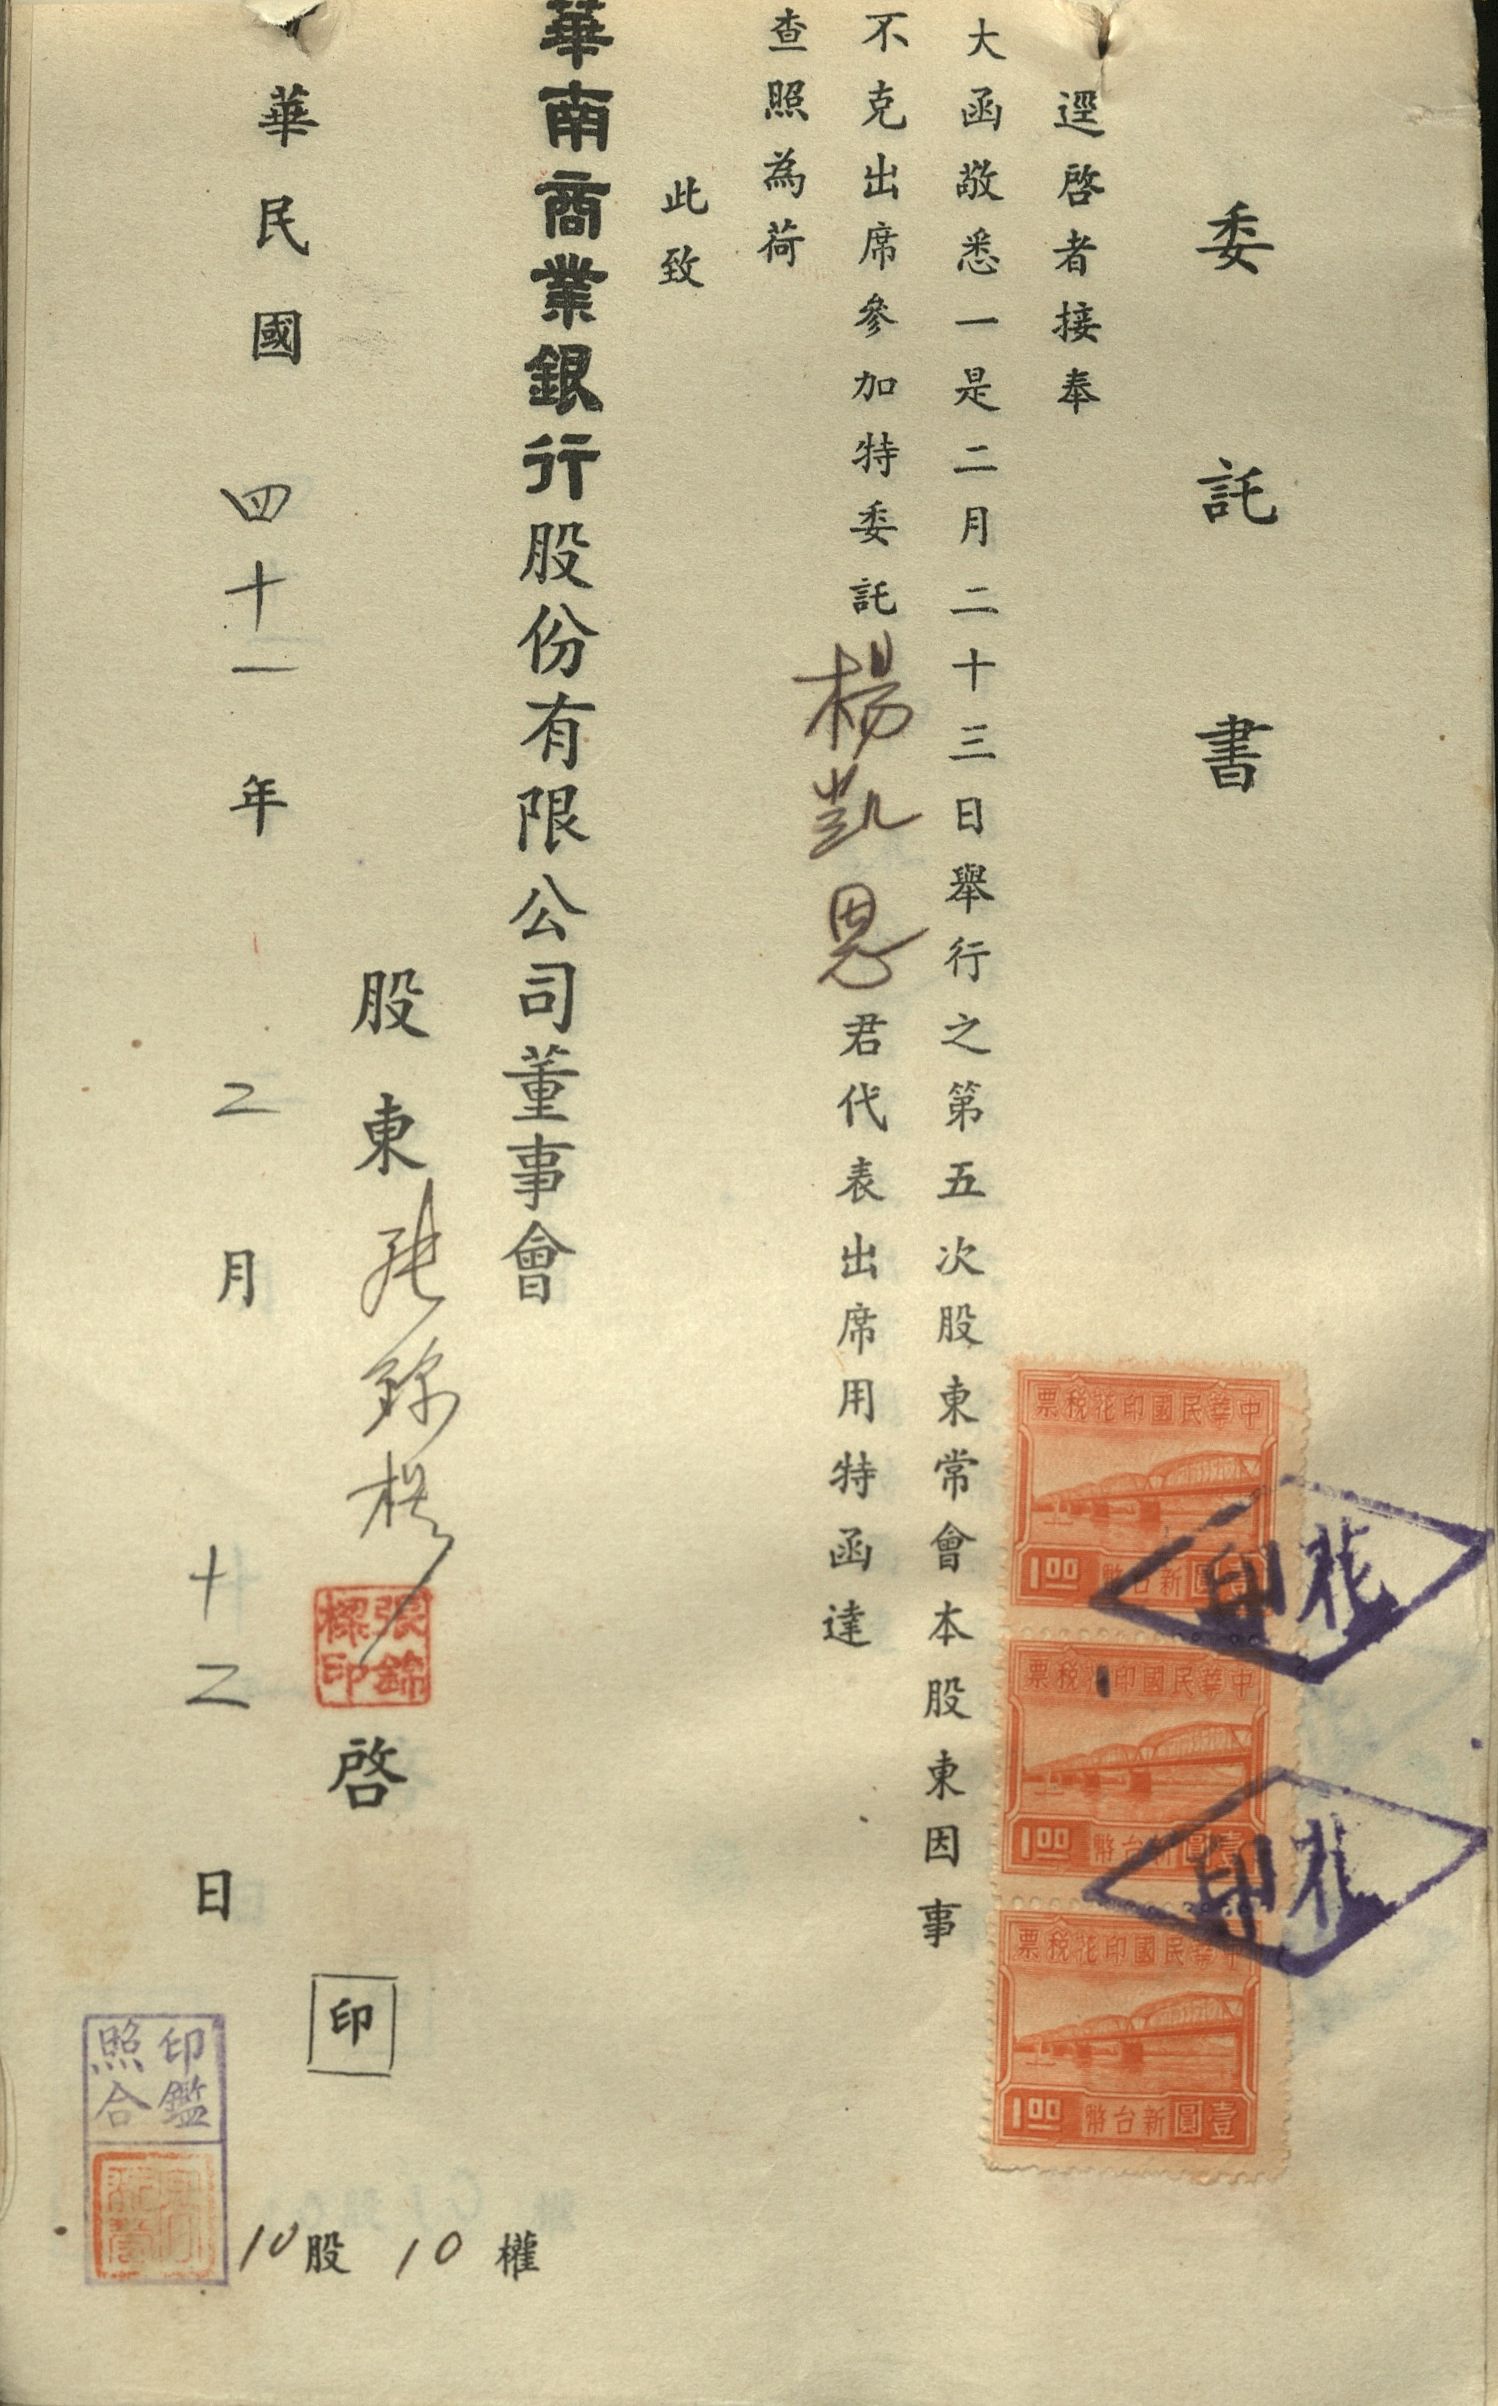 委託書
逕啓者接奉
大函敬悉一是二月二十三日舉行之第五次股東常會本股東因事
不克出席參加特委託楊凱恩君代表出席用特函達
查照為荷
此致
華南商業銀行股份有限公司董事會
股東張錦樑啓
張錦樑印
印
華民國四十一年二月十二日
印鑑照合
10股10權
中華民國印花稅票
1.00
壹圓新台幣
中華民國印花稅票
1.00
壹圓新台幣
中華民國印花稅票
1.00
壹圓新台幣
花印
花印